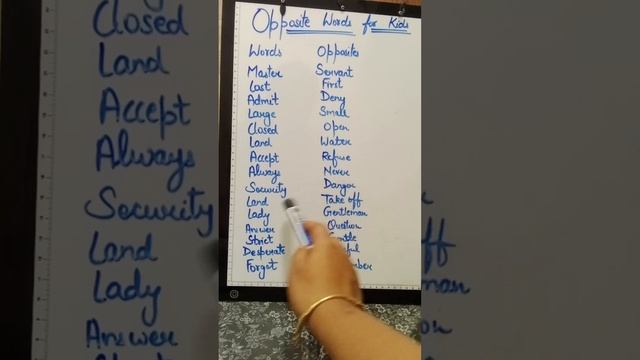 Opposite Words for Kids
Words Opposites
Master Servant
Last First
Admit Deny
Large Small
Closed Open
Land Water
Accept Refuse
Always Never
Security Danger
Land Take off
Lady Gentleman
Answer Question
Strict
Desperate
Forget
Closed
Land
Accept
Always
Security
Land
Lady
Answer